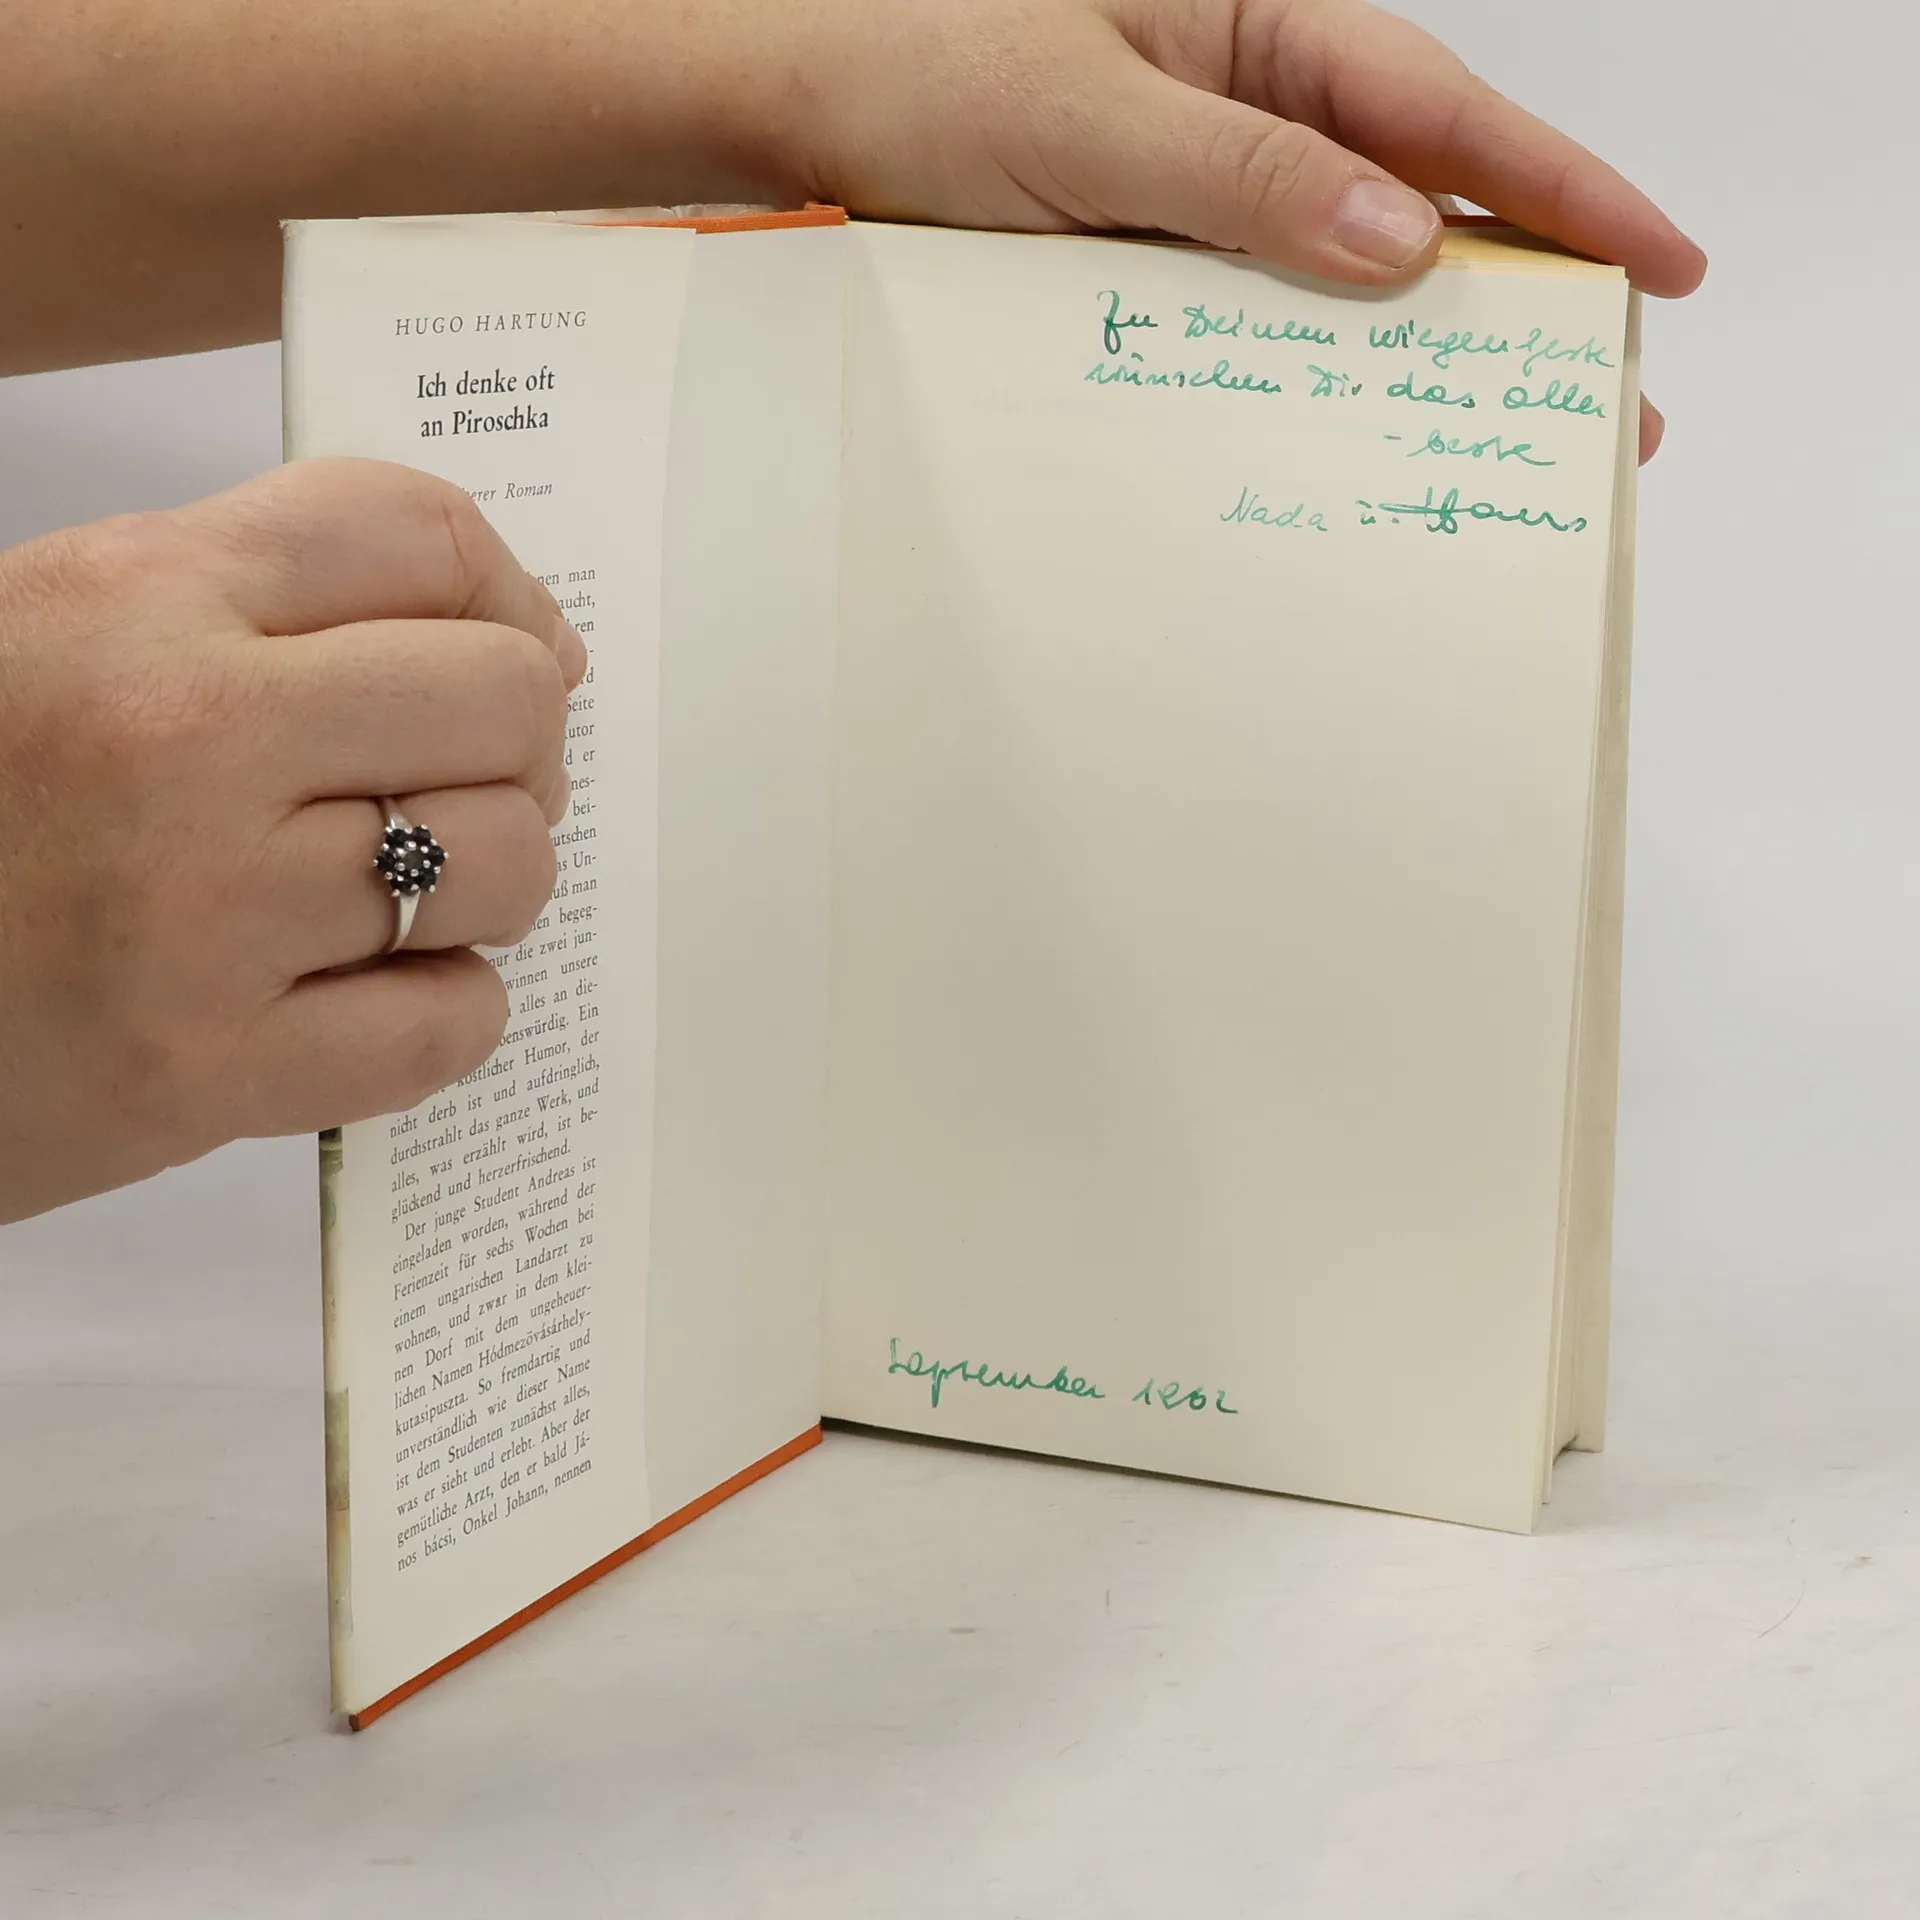 HUGO HARTUNG
Ich denke oft
an Piroschka
Roman
man
Seite
er
bei-
Un-
man
begeg-
nur die zwei jun-
unsere
alles an die-
Ein
köstlicher Humor, der
nicht derb ist und aufdringlich,
durchstrahlt das ganze Werk, und
alles, was erzählt wird, ist be-
glückend und herzerfrischend.
Der junge Student Andreas ist
eingeladen worden, während der
Ferienzeit für sechs Wochen bei
einem ungarischen Landarzt zu
wohnen, und zwar in dem klei-
nen Dorf mit dem ungeheuer-
lichen Namen Hódmezövásárhely-
kutasipuszta. So fremdartig und
unverständlich wie dieser Name
ist dem Studenten zunächst alles,
was er sieht und erlebt. Aber der
gemütliche Arzt, den er bald Já-
nos bácsi, Onkel Johann, nennen
Zu Deinem wiegenfeste
wünschen Dir das aller
- beste
Nada u. Hans
September 1962